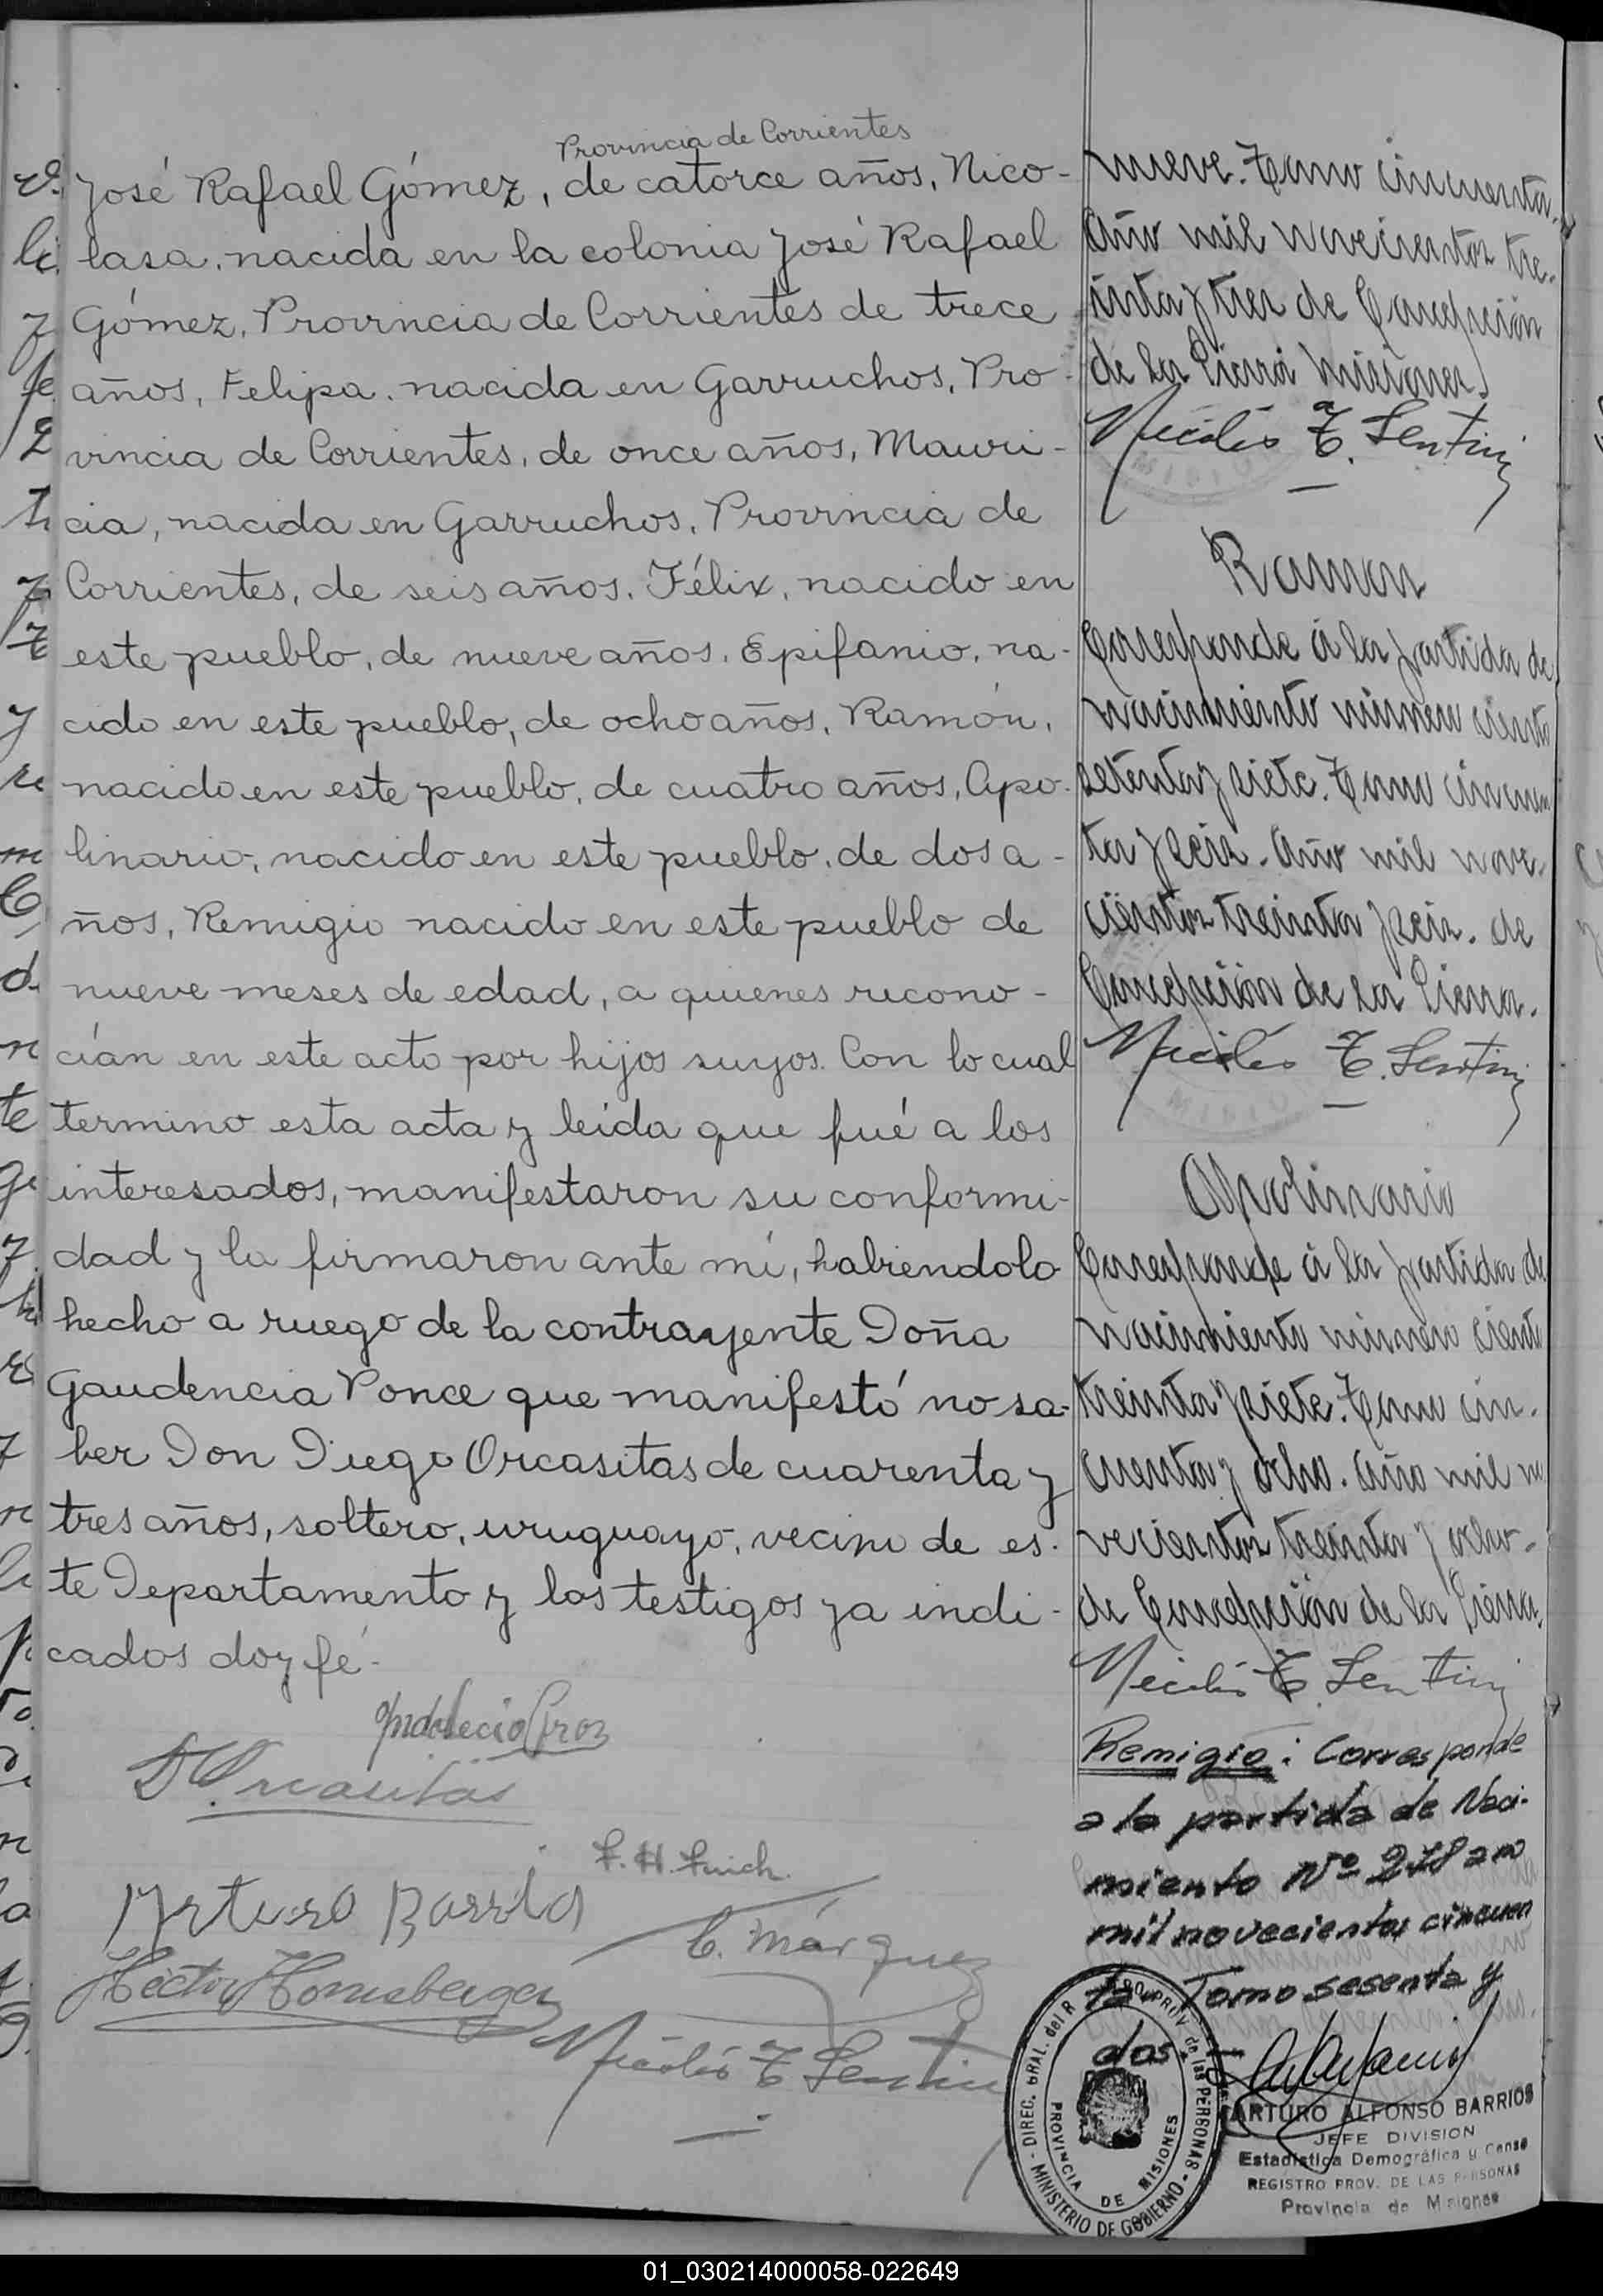 Provincia de Corrientes
José Rafael Gómez, de catorce años, Nico-
lasa, nacida en la colonia José Rafael
Gómez, Provincia de Corrientes de trece
años, Felipa, nacida en Garruchos, Pro-
vincia de Corrientes, de once años, Mauri-
cia, nacida en Garruchos, Provincia de
Corrientes, de seis años, Félix, nacido en
este pueblo, de nueve años, Epifanio, na-
cido en este pueblo, de ocho años, Ramón,
nacido en este pueblo, de cuatro años, Apo-
linario, nacido en este pueblo, de dos a-
ños, Remigio nacido en este pueblo de
nueve meses de edad, a quienes recono-
cían en este acto por hijos suyos. Con lo cual
termino esta acta y leida que fué a los
interesados, manifestaron su conformi-
dad y la firmaron ante mí, habiendolo
hecho a ruego de la contrayente Doña
Gaudencia Ponce que manifestó no sa-
ber Don Diego Orcasitas de cuarenta y
tres años, soltero, uruguayo, vecino de es-
te Departamento y los testigos ya indi-
cados doy fé-
Indolecio
D. Orcasitas
Arturo
C. Márquez
Héctor
Nicolás
nueve. Tomo cincuenta.
Año mil novecientos tre-
inta y tres de Concepción
de la Sierra Misiones.
Nicolás
Ramon
Corresponde á la partida de
nacimiento número ciento
setenta y siete. Tomo cincuen
ta y seis. Año mil nove-
cientos treinta y seis. de
Concepción de la Sierra.
Nicolás
Apolinario
Corresponde á la partida de
nacimiento número ciento
treinta y siete. Tomo cin-
cuenta y ocho. Año mil no
vecientos treinta y ocho.
de Concepción de la Sierra.
Nicolás
Remigio: Corresponde
a la partida de Naci-
miento Nº año
mil novecientos cincuen
ta. Tomo sesenta y
dos.
DIREC. GRAL. del R PROV. de las PERSONAS - MINISTERIO DE GOBIERNO -
PROVINCIA DE MISIONES
ARTURO ALFONSO BARRIOS
JEFE DIVISION
Estadística Demográfica y Censo
REGISTRO PROV. DE LAS PERSONAS
Provincia de Misiones
01_030214000058-022649